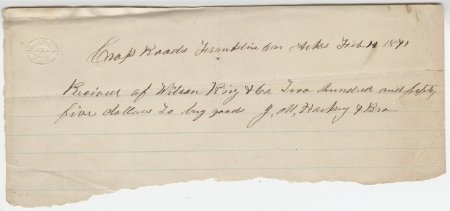 Cross Roads Franklin Co Arks Feb 11 1871
Recived of Wilson King & Co Two hundred and fifty
five dollars To buy goods J. M. & Bro